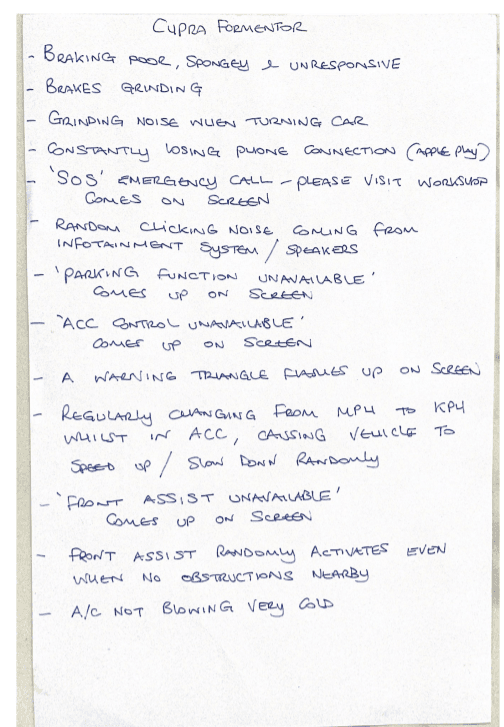 CUPRA FORMENTOR
- BRAKING POOR, SPONGEY & UNRESPONSIVE
- BRAKES GRINDING
- GRINDING NOISE WHEN TURNING CAR
- CONSTANTLY LOSING PHONE CONNECTION (APPLE PLAY)
- 'SOS' EMERGENCY CALL - PLEASE VISIT WORKSHOP
COMES ON SCREEN
- RANDOM CLICKING NOISE COMING FROM
INFOTAINMENT SYSTEM / SPEAKERS
- 'PARKING FUNCTION UNAVAILABLE'
COMES UP ON SCREEN
- 'ACC CONTROL UNAVAILABLE'
COMES UP ON SCREEN
- A WARNING TRIANGLE FLASHES UP ON SCREEN
- REGULARLY CHANGING FROM MPH TO KPH
WHILST IN ACC, CAUSING VEHICLE TO
SPEED UP / SLOW DOWN RANDOMLY
- 'FRONT ASSIST UNAVAILABLE'
COMES UP ON SCREEN
- FRONT ASSIST RANDOMLY ACTIVATES EVEN
WHEN NO OBSTRUCTIONS NEARBY
- A/C NOT BLOWING VERY COLD